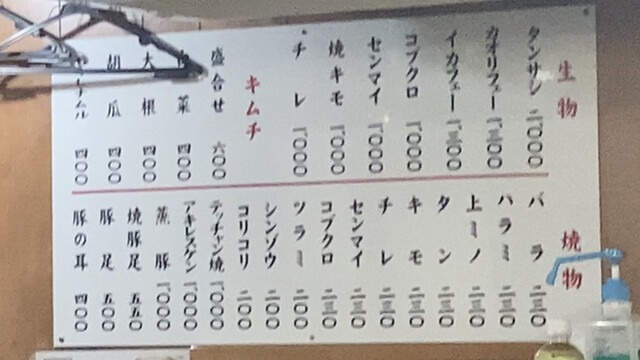 生物
タンサシ 一、〇〇〇
カオリフェー 一、三〇〇
イカフェー 一、三〇〇
コブクロ 一、〇〇〇
センマイ 一、〇〇〇
焼キモ 一、〇〇〇
チレ 一、〇〇〇
キムチ
盛合せ 六〇〇
菜 四〇〇
大根 四〇〇
胡瓜 四〇〇
ナムル 四〇〇
焼物
バラ 二三〇
ハラミ 二三〇
上ミノ 二三〇
タン 二三〇
キモ 二三〇
チレ 二三〇
センマイ 二三〇
コブクロ 二三〇
ツラミ 二〇〇
シンゾウ 二〇〇
コリコリ 二〇〇
テッチャン焼 一、〇〇〇
アキレスケン 一、〇〇〇
蒸豚 一、〇〇〇
焼豚足 五五〇
豚足 五〇〇
豚の耳 四〇〇